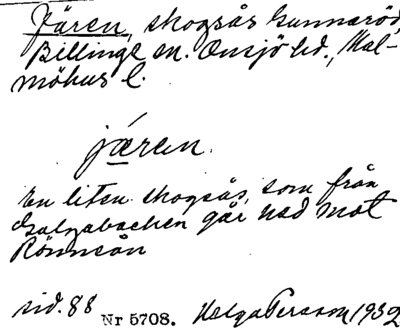 Jären, skogsås Gunnaröd,
Billinge sn. Onsjö hd., Mal-
möhus l.
jæren.
En liten skogsås, som från
Galgabacken går ned mot
Rönneån
sid. 88 Nr 5708. Helga Persson 1932